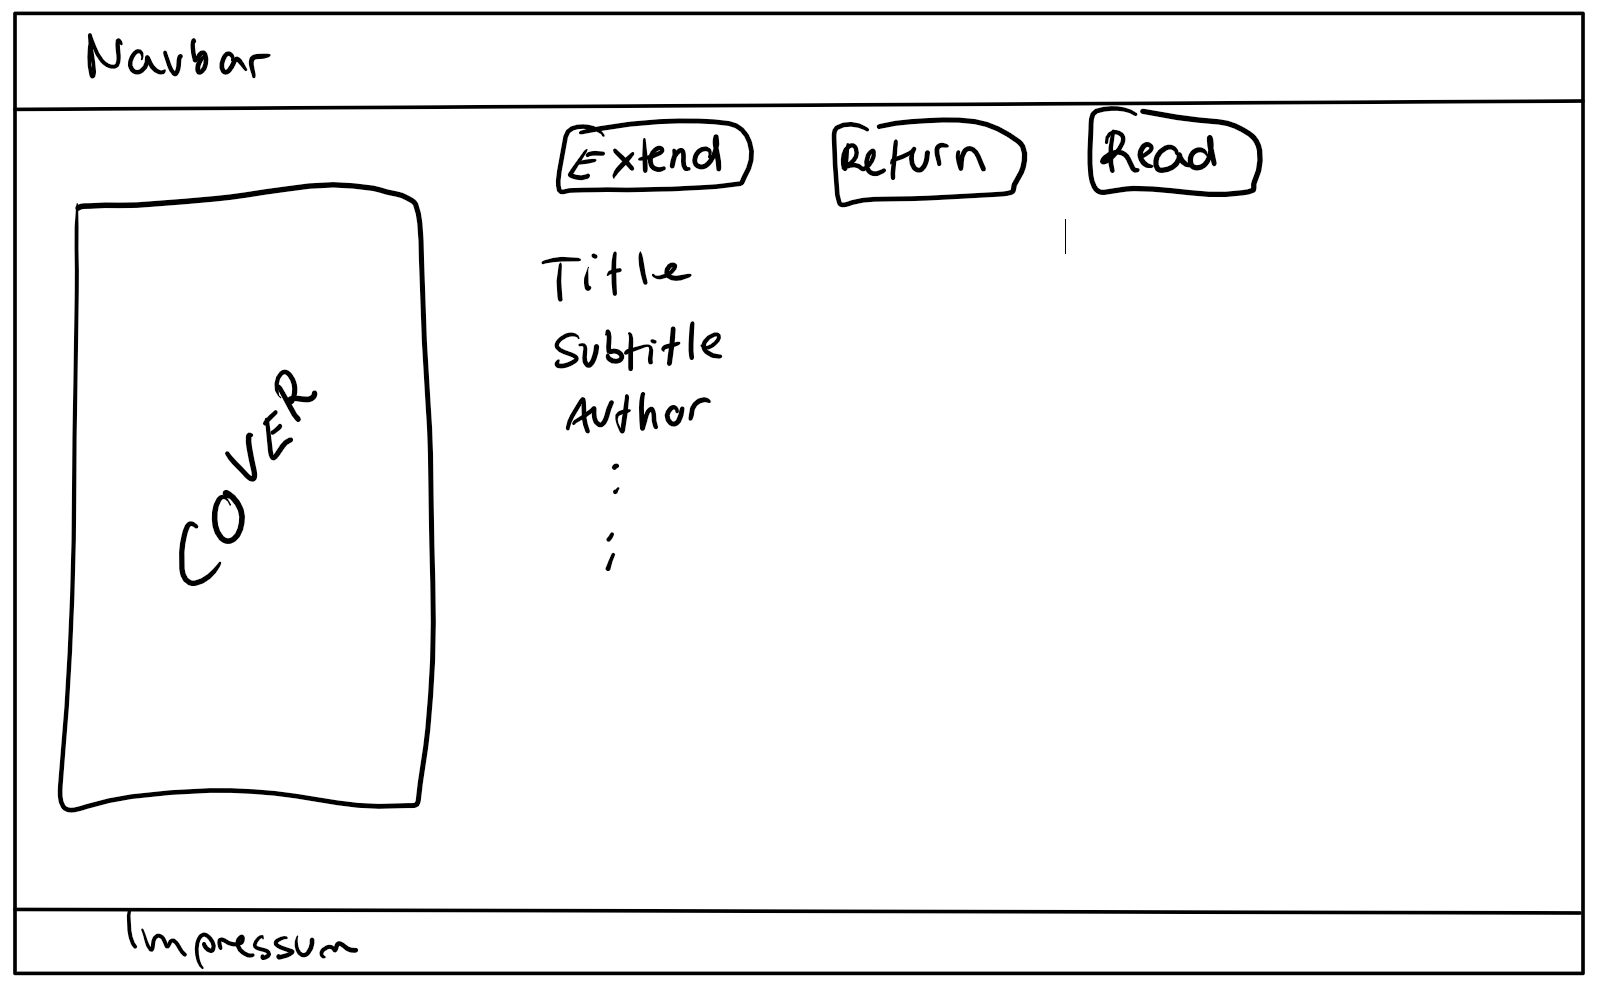 Navbar
Extend Return Read
Title
Subtitle
Author
COVER
Impressum